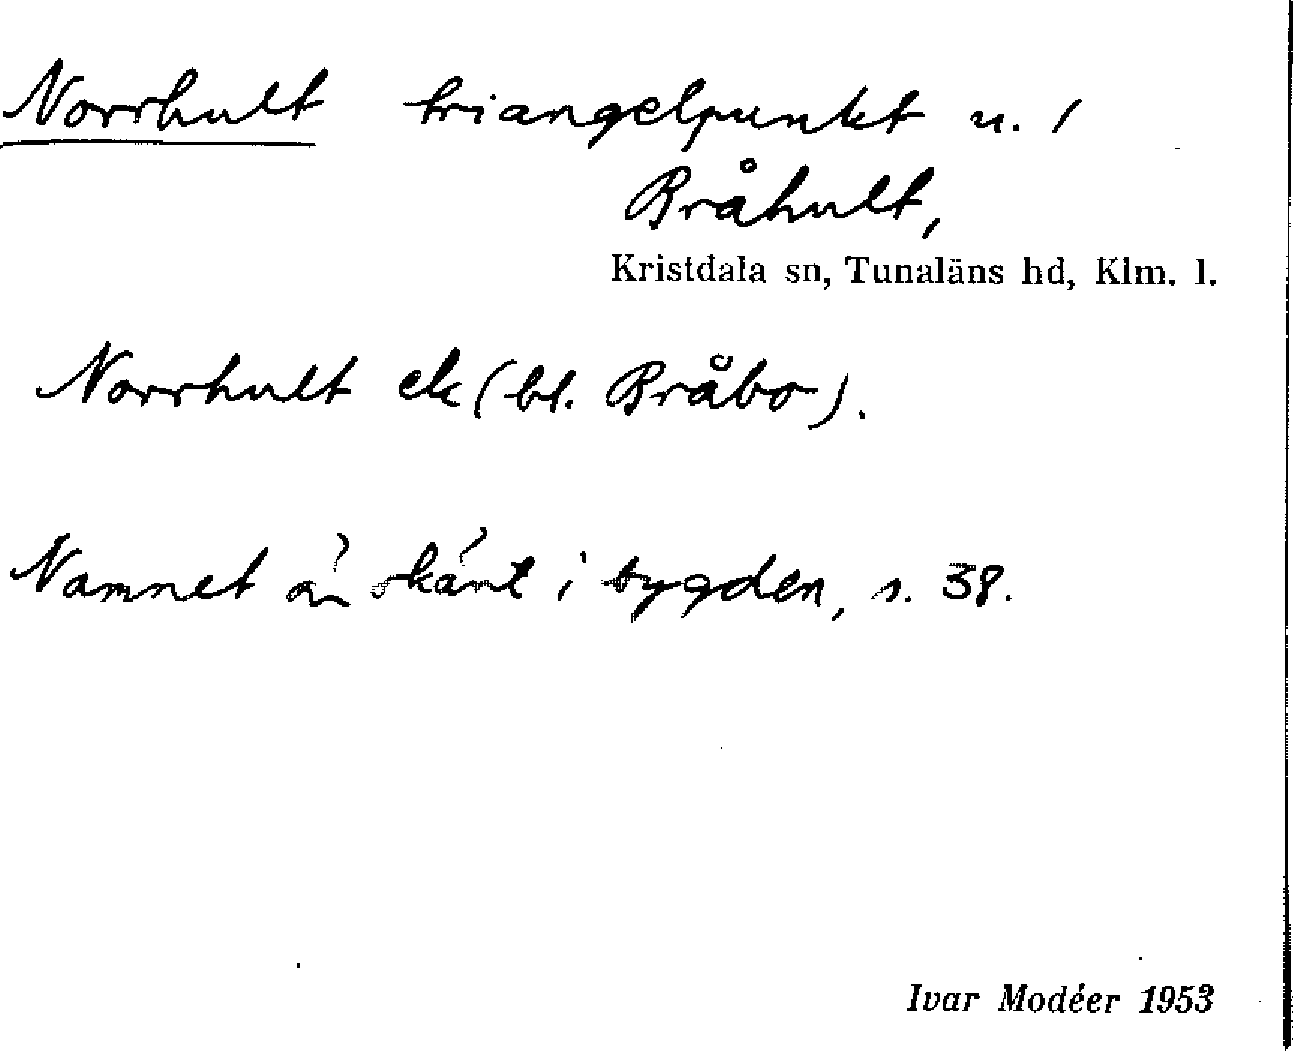 Norrhult triangelpunkt u. 1
Bråhult,
Kristdala sn, Tunaläns hd, Klm. l.
Norrhult ek (bl. Bråbo).
Namnet är känt i bygden, s. 38.
Ivar Modéer 1953